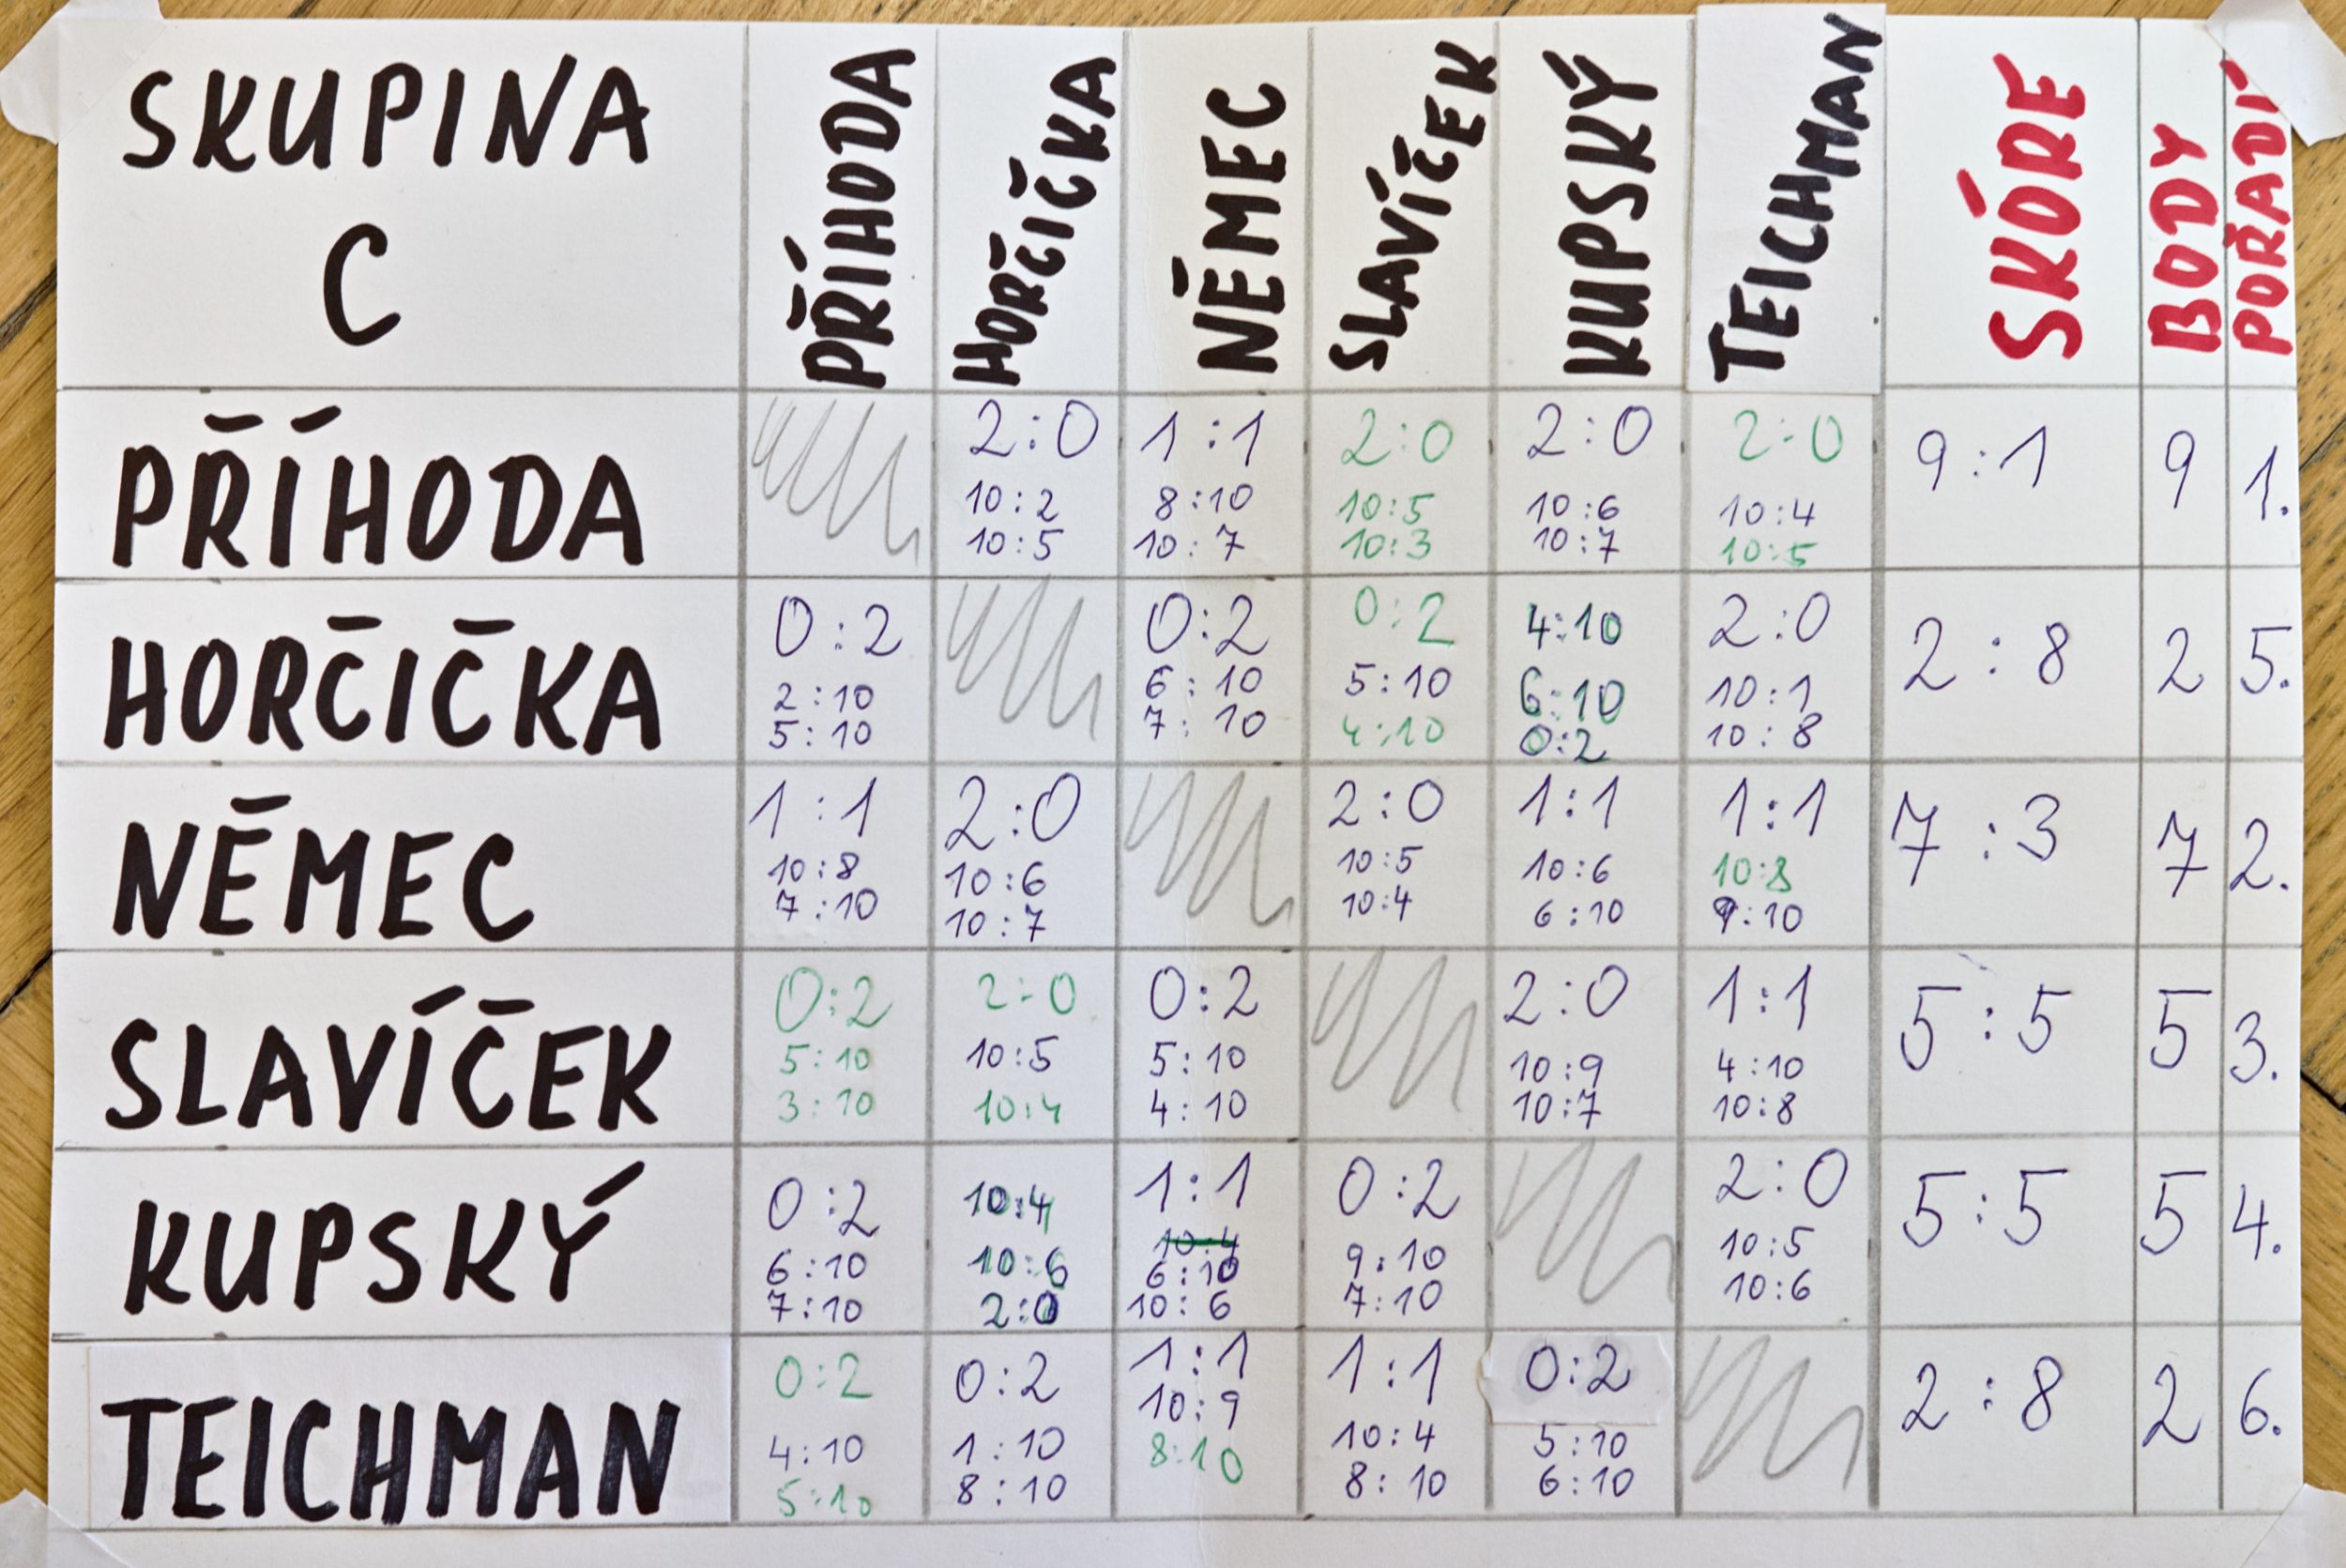 SKUPINA
C
PŘÍHODA
HORČIČKA
NĚMEC
SLAVÍČEK
KUPSKÝ
TEICHMAN
SKÓRE
BODY
POŘADÍ
PŘÍHODA
2:0
10:2
10:5
1:1
8:10
10:7
2:0
10:5
10:3
2:0
10:6
10:7
2:0
10:4
10:5
9:1
9
1.
HORČIČKA
0:2
2:10
5:10
0:2
6:10
7:10
0:2
5:10
4:10
4:10
6:10
0:2
2:0
10:1
10:8
2:8
2
5.
NĚMEC
1:1
10:8
7:10
2:0
10:6
10:7
2:0
10:5
10:4
1:1
10:6
6:10
1:1
10:8
9:10
7:3
7
2.
SLAVÍČEK
0:2
5:10
3:10
2:0
10:5
10:4
0:2
5:10
4:10
2:0
10:9
10:7
1:1
4:10
10:8
5:5
5
3.
KUPSKÝ
0:2
6:10
7:10
10:4
10:6
2:0
1:1
10:4
6:10
10:6
0:2
9:10
7:10
2:0
10:5
10:6
5:5
5
4.
TEICHMAN
0:2
4:10
5:10
0:2
1:10
8:10
1:1
10:9
8:10
1:1
10:4
8:10
0:2
5:10
6:10
2:8
2
6.